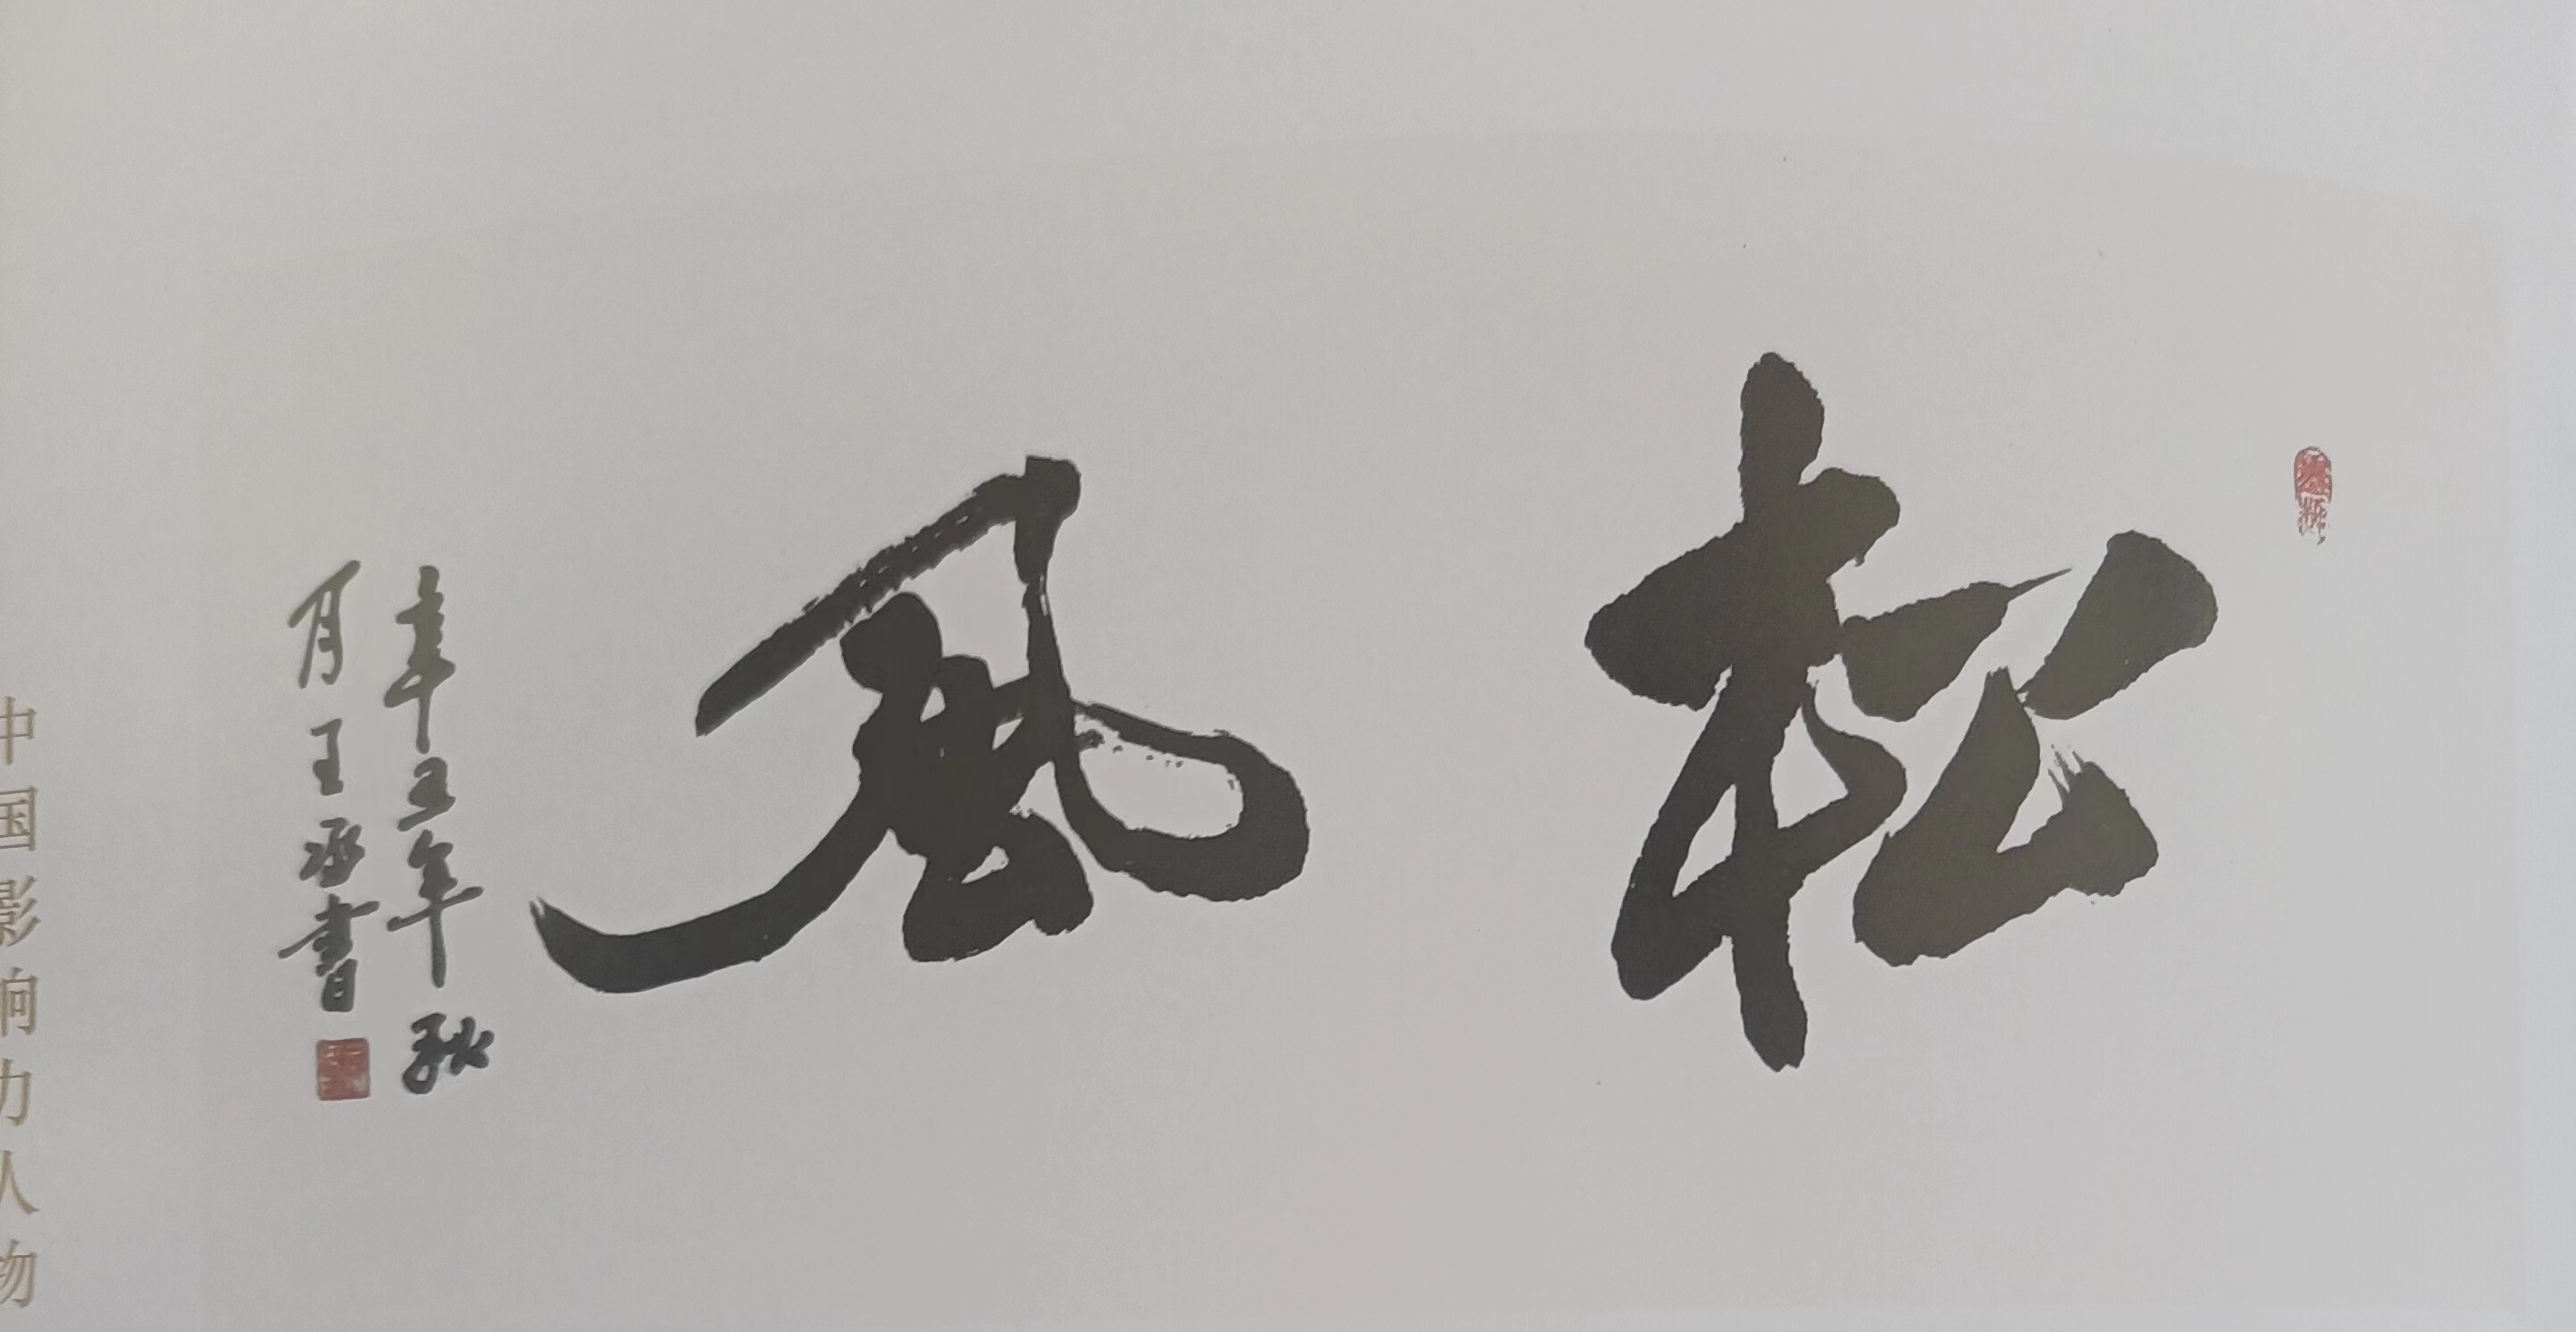 松风
辛丑年秋
月王承书
中国影响力人物